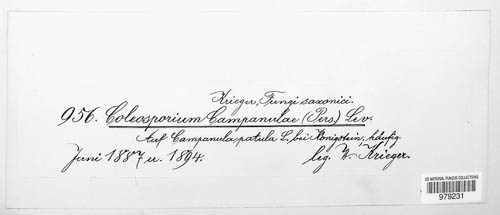 Krieger, Fungi saxonici.
956. Coleosporium Campanulae (Pers.) Lev.
Auf Campanula patula L., bei Königstein, häufig.
Juni 1887 u. 1894. leg. W. Krieger.
US NATIONAL FUNGUS COLLECTIONS
979231